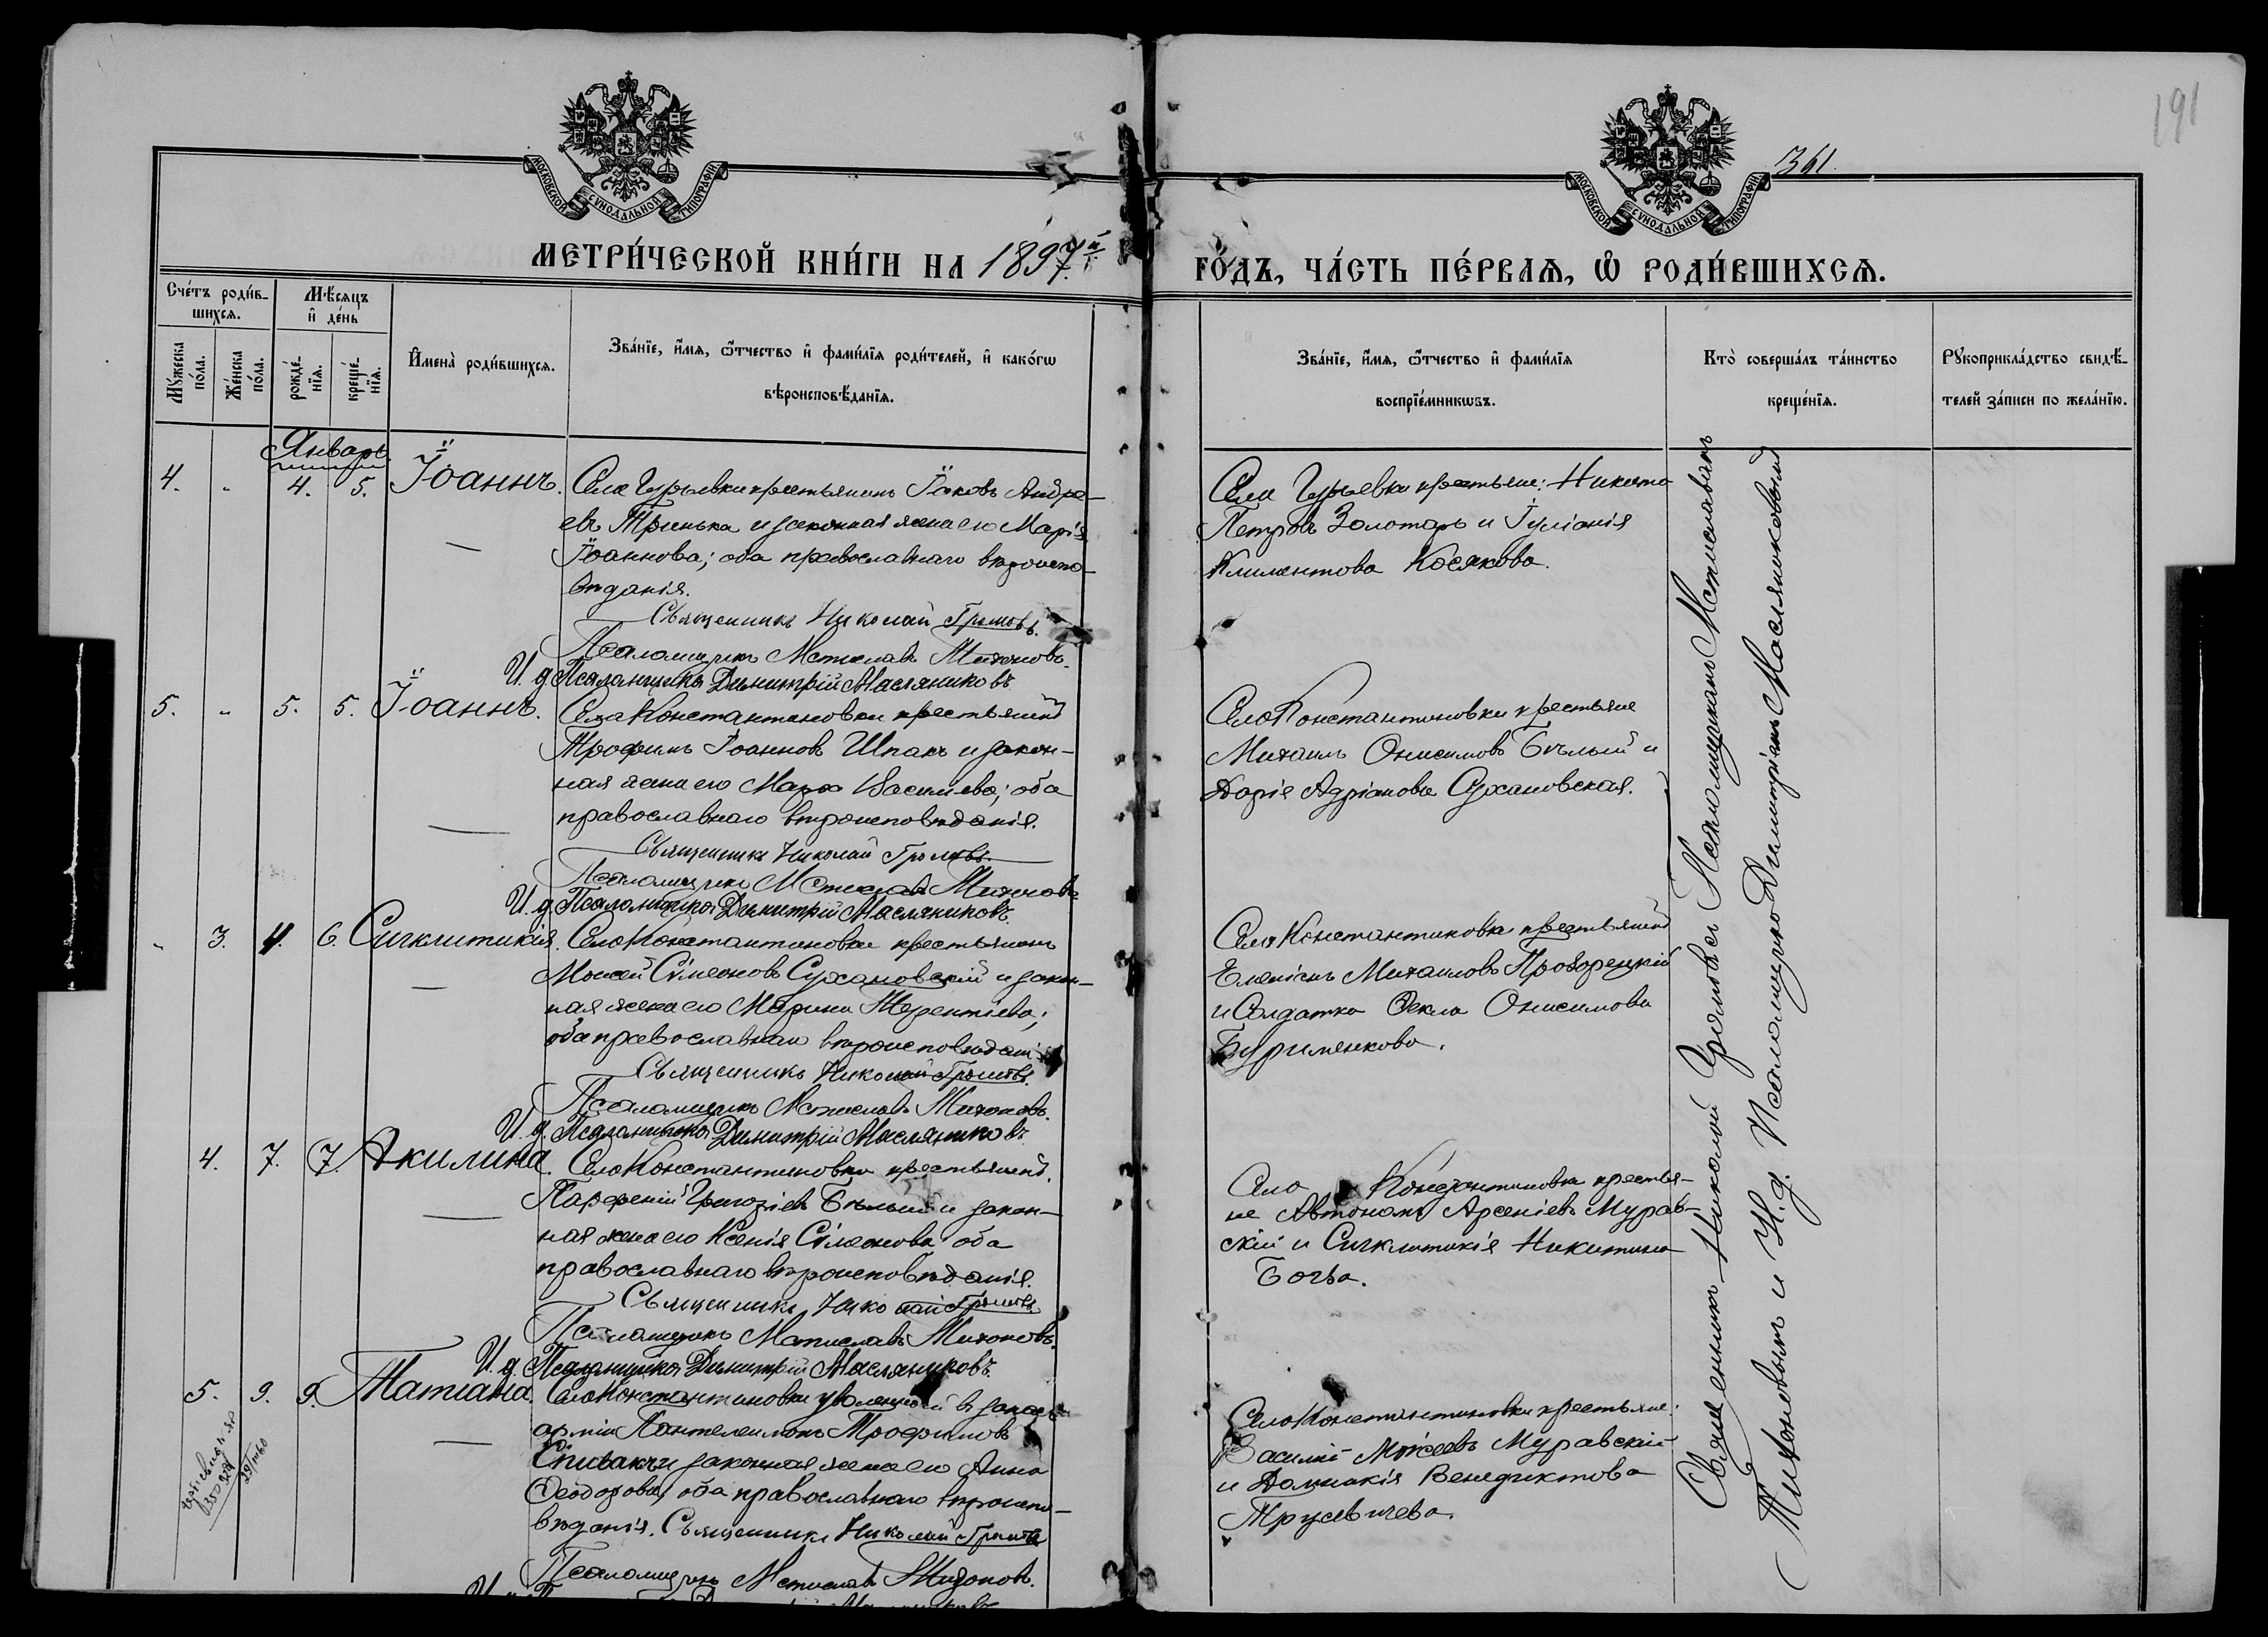 191
361.
МОСКОВСКОЙ СѴНОДАЛЬНОЙ ТИПОГРАФІИ
МОСКОВСКОЙ СѴНОДАЛЬНОЙ ТИПОГРАФІИ
МЕТРИ́ЧЕСКОЙ КНИ́ГИ НА 1897й
ГО́ДЪ, ЧА́СТЬ ПЕ́РВАѦ, Ѡ РОДИ́ВШИХСѦ.
Сче́тъ роди́в-
шихсѧ.
Мѣ́сѧцъ
и҆ де́нь
Мꙋ́жеска
по́ла.
Же́нска
по́ла.
рожде́-
нїѧ.
креще́-
нїѧ.
И҆мена̀ роди́вшихсѧ.
Зва́нїе, и҆́мѧ, ѻ҆́тчество и҆ фами́лїѧ роди́телей, и҆ како́гѡ
вѣроисповѣ́данїѧ.
Зва́нїе, и҆́мѧ, ѻ҆́тчество и҆ фами́лїѧ
воспрїе́мникѡвъ.
Кто̀ соверша́лъ та́инство
креще́нїѧ.
Рꙋкоприкла́дство свидѣ́-
телей за́писи по жела́нїю.
Январь.
4. " 4. 5. Іоаннъ.
Села Гурьевки крестьянинъ Іаковъ Андре-
евъ Тринька и законная жена его Марія
Іоаннова; оба православнаго вѣроиспо-
вѣданія.
Священникъ Николай Громовъ.
Псаломщикъ Мстиславъ Тихоновъ.
И. д. Псаломщика Димитрій Масляниковъ
Села Гурьевки крестьяне: Никита
Петровъ Золотарь и Іуліанія
Климентова Косякова.
5. " 5. 5. Іоаннъ.
Села Константиновки крестьянинъ
Трофимъ Іоанновъ Шпакъ и закон-
ная жена его Марѳа Васильева; оба
православнаго вѣроисповѣданія.
Священникъ Николай Громовъ.
Псаломщикъ Мстиславъ Тихоновъ
И. д. Псаломщика Димитрій Масляниковъ.
Села Константиновки крестьяне
Михаилъ Онисимовъ Бѣлый и
Дарія Адріанова Сухановская.
" 3. 4. 6. Сигклитикія.
Села Константиновки крестьянинъ
Моисей Сімеоновъ Сухановскій и закон-
ная жена его Марина Терентіева;
оба православнаго вѣроисповѣдані
Священникъ Николай Громовъ.
Псаломщикъ Мстиславъ Тихоновъ.
И. д. Псаломщика Димитрій Масляниковъ
Села Константиновки крестьянинъ
Михаиловъ
и Солдатка Ѳекла Онисимова
Бурименкова.
4. 7. 7. Акилина.
Села Константиновки крестьянинъ
Парѳеній Григоріевъ Бѣлый и закон-
ная жена его Ксенія Сімеонова оба
православнаго вѣроисповѣданія.
Священникъ Николай Громовъ
Псаломщикъ Мстиславъ Тихоновъ.
И. д. Псаломщика Димитрій Масляниковъ.
Села Константиновки крестья-
не Автономъ Арсеніевъ Мурав-
скій и Сигклитикія Никитина
5. 9. 9. Татіана.
Села Константиновки уволенный въ запасъ
арміи Пантелеимонъ Трофимовъ
Спивакъ и законная жена его Анна
Ѳеодорова, оба православнаго вѣроиспо-
вѣданія. Священникъ Николай Громовъ
Псаломщикъ Мстиславъ Тихоновъ.
Села Константиновки крестьяне:
Василій Моѵсеевъ Муравскій
и Домникія Венедиктова
Трусевичева.
Священникъ Николай Громовъ съ Псаломщикомъ Мстиславомъ
Тихоновымъ и И. д. Псаломщика Димитріемъ Масляниковымъ